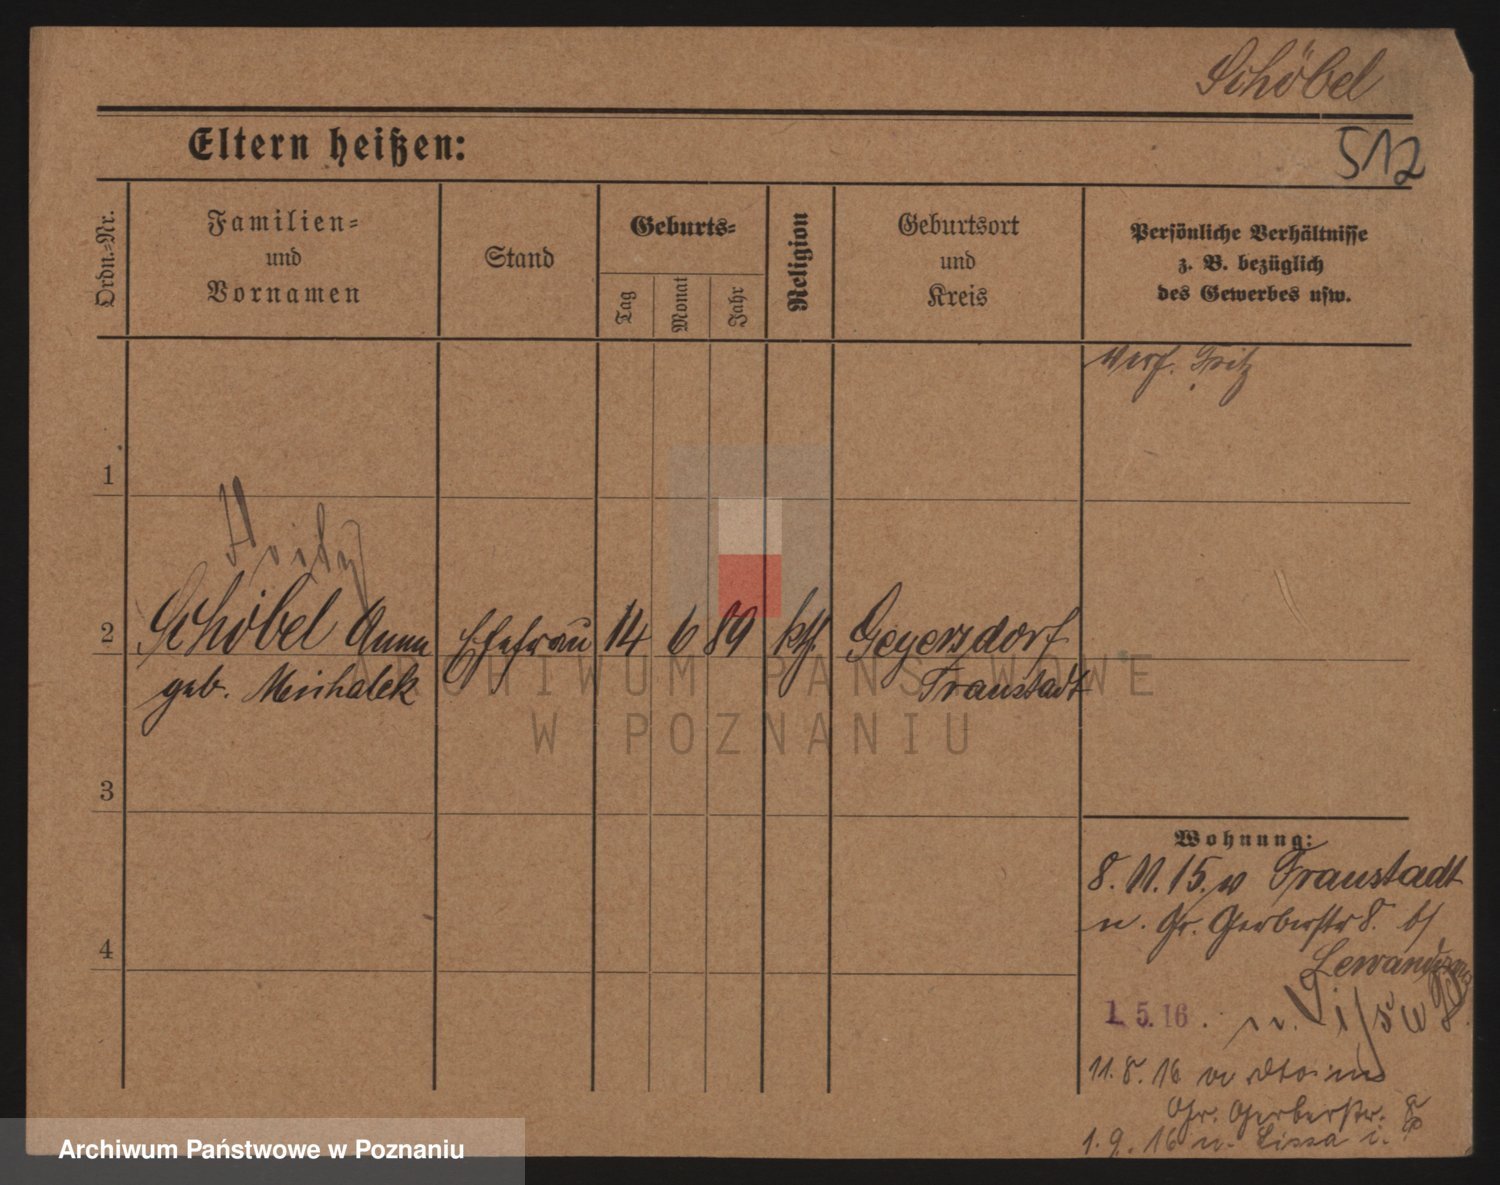 Schöbel
512
Eltern heißen:
Ordn.-Nr.
Familien-
und
Vornamen
Stand
Geburts-
Tag
Monat
Jahr
Religion
Geburtsort
und
Kreis
Persönliche Verhältnisse
z. B. bezüglich
des Gewerbes usw.
Fritz
1
2
Schöbel Anna Ehefrau 14 6 89 kth. Geyersdorf
geb. Michalek Fraustadt
3
Wohnung:
8. 11. 15. v Fraustadt
n. Gr. Gerberstr 8. b/
4
1. 5. 16. n.
11. 8. 16
Gr. Gerberstr. 8
1. 9. 16 n. Lissa i. P.
ARCHIWUM PAŃSTWOWE
W POZNANIU
Archiwum Państwowe w Poznaniu